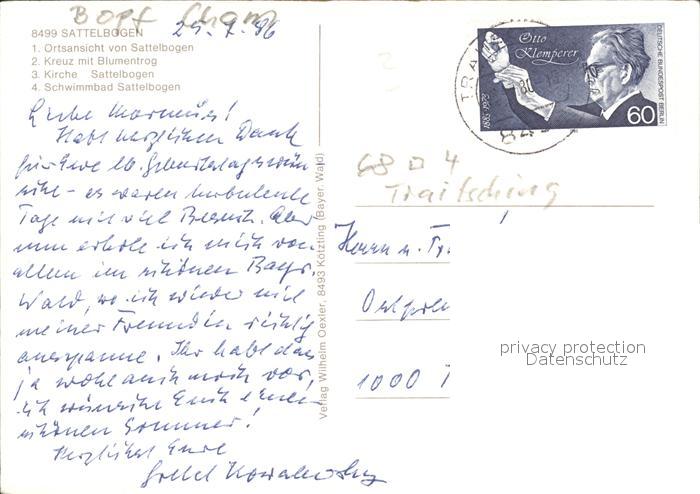 Bopf Cham
8499 SATTELBOGEN
29.7.86
1. Ortsansicht von Sattelbogen
2. Kreuz mit Blumentrog
3. Kirche Sattelbogen
4. Schwimmbad Sattelbogen
Otto
Klemperer
1885-1973
60
DEUTSCHE BUNDESPOST BERLIN
TRAI
Liebe
Habt herzlichen Dank
für Eure lb. Geburtstagswün
sche - es waren turbulente
Tage mit viel Besuch. Aber
nun erhole ich mich vor
allem im schönen Bayr.
Wald, wo ich wieder mit
meiner Freundin richtig
ausspanne. Ihr habt das
ja wohl auch noch vor,
ich wünsche Euch einen
schönen Sommer!
Herzlichst Eure
Gretel Kowalewsky
Verlag Wilhelm Oexler, 8493 Kötzting (Bayer. Wald)
68 4
Traitsching
Herrn u. Fr.
1000
privacy protection
Datenschutz